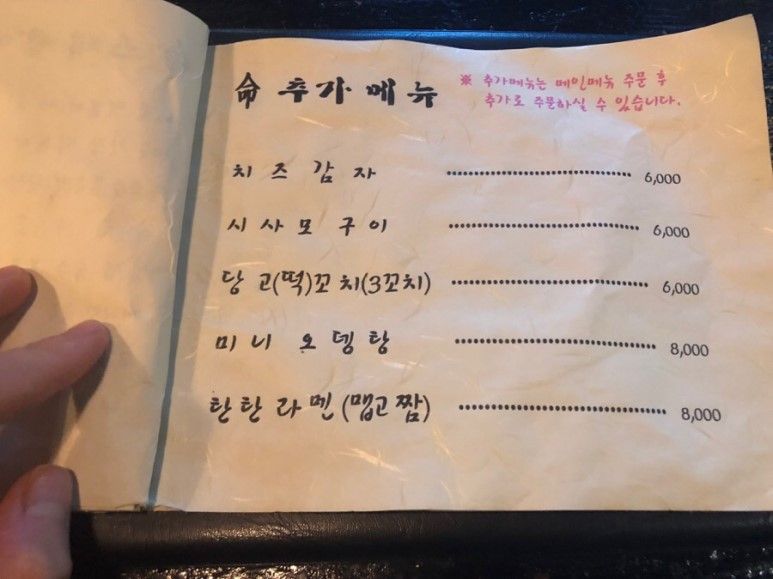 命 추가 메뉴
※ 추가메뉴는 메인메뉴 주문 후
추가로 주문하실 수 있습니다.
치즈감자 6,000
시사모구이 6,000
당고(떡)꼬치(3꼬치) 6,000
미니 오뎅탕 8,000
탄탄라멘(맵고짬) 8,000